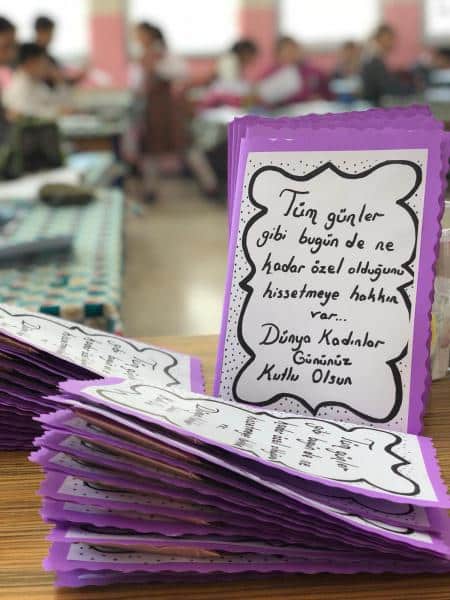 Tüm günler
gibi bugün de ne
kadar özel olduğunu
hissetmeye hakkın
var...
Dünya Kadınlar
Gününüz
Kutlu Olsun